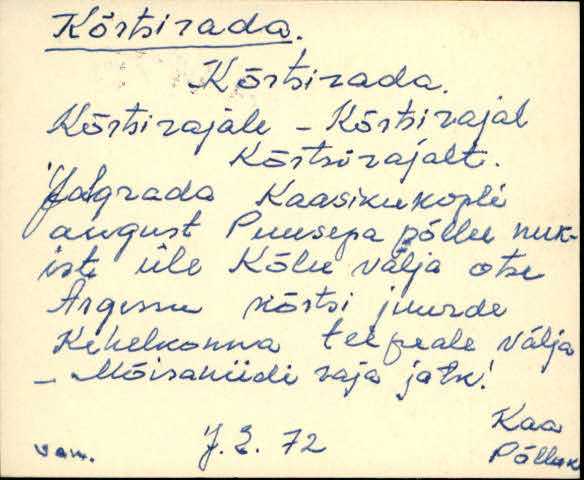 Kõrtsirada.
Kõrtsirada.
Kõrtsirajale - Kõrtsirajal
Kõrtsirajalt.
Jalgrada Kaasikukopli
august Puusepa põllu nuk-
ist üle Kõlu välja otse
kõrtsi juurde
Kihelkonna teepeale välja
- Mõisaniidi raja jätk!
van. J. E. 72
Kaa
Põllu